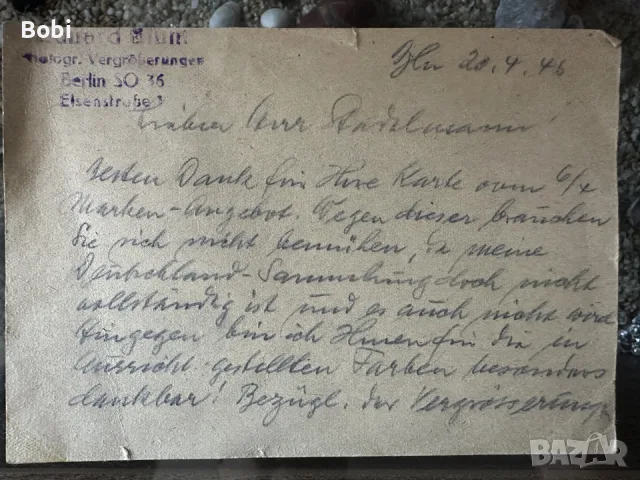 Bobi
Eduard Blum
Photogr. Vergrößerungen
Berlin SO 36
Elsenstraße 3
Bln 20.4.46
Lieber Herr Stadelmann!
Besten Dank für Ihre Karte vom 6/4
Marken-Angebot. Wegen dieser brauchen
Sie sich nicht bemühen, da meine
Deutschland-Sammlung doch nicht
vollständig ist und es auch nicht wird
Hingegen bin ich Ihnen für die in
Aussicht gestellten Farben besonders
dankbar! Bezügl. der Vergrösserung
BAZAR